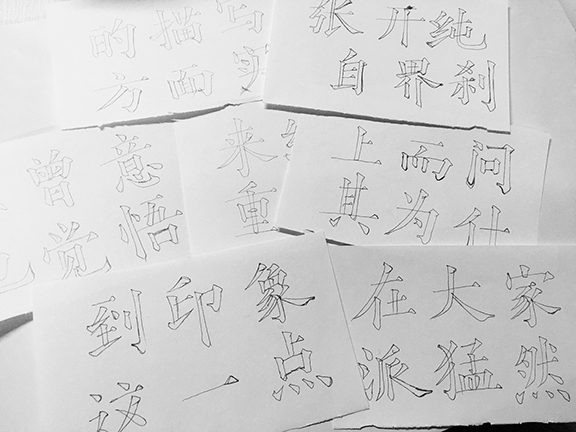 的描写
方面实
张开纯
自界刹
曾意
觉悟
来
重
上而问
其为什
到印象
这一点
在大家
派猛然